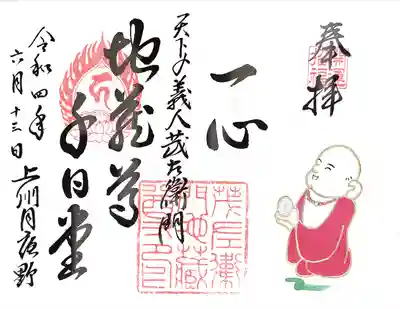 奉拝
一心
天下の義人茂左衛門
地蔵尊
千日堂
上州月夜野
令和四年
六月十三日